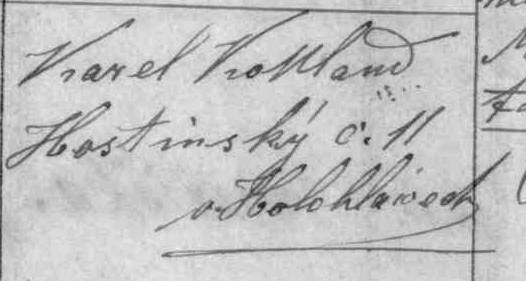 Karel Kottland
Hostinský č. 11
v Holohlavech